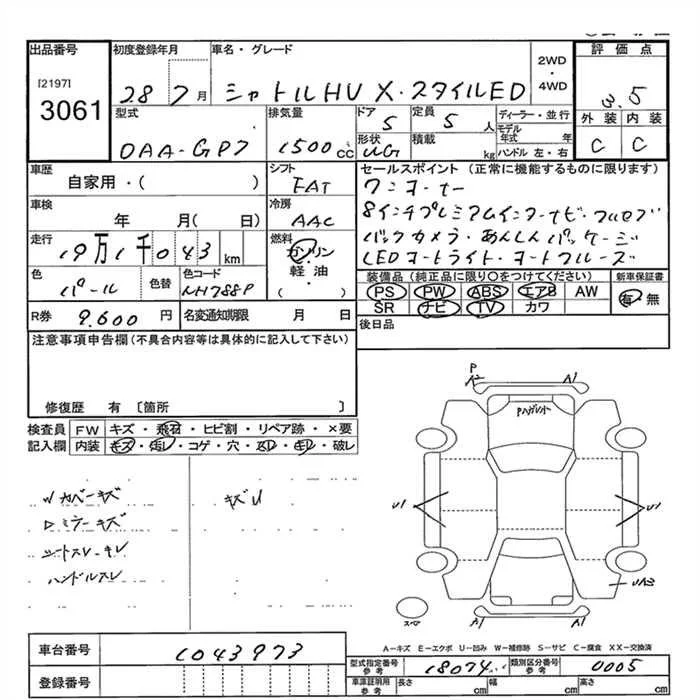 出品番号 初度登録年月 車名・グレード
[2197]
3061
28 7月 シャトルHV X・スタイルED
2WD・4WD
評価点
3.5
外装 内装
C C
型式 排気量 ドア 定員 ディーラー・並行
DAA-GP7 1500CC 5 5人
形状 積載 kg
WG
モデル年式 年
ハンドル 左・右
車歴 シフト セールスポイント(正常に機能するものに限ります)
自家用・( ) FAT ワンオーナー
車検 冷房 8インチプレミアムインターナビ・フルセグ
年 月( 日) AAC バックカメラ・あんしんパッケージ
走行 燃料 LEDオートライト・オートクルーズ
19万1千043km ガソリン・軽油・( )
色 色替 色コード 装備品(純正品に限り○をつけてください) 新車保証書
パール NH788P PS PW ABS エアB AW 有・無
SR ナビ TV カワ
R券 9,600円 名変通知期限 月 日 後日品
注意事項申告欄(不具合内容等は具体的に記入して下さい)
修復歴 有 〔箇所 〕
検査員記入欄 FW キズ・飛石・ヒビ割・リペア跡・×要
内装 キズ・汚レ・コゲ・穴・スレ・キレ・破レ
Wカバーキズ キズU
Dミラーキズ
シートスレ・キレ
ハンドルスレ
P
A2 A1
Pハゲ
U1 U1
UA3
A1 A1
スペア
A―キズ E―エクボ U―凹み W―補修跡 S―サビ C―腐食 XX―交換済
車台番号 1043973
型式指定番号 参考 18074 類別区分番号 参考 0005
登録番号
車庫証明用 参考 長さ cm 幅 cm 高さ cm